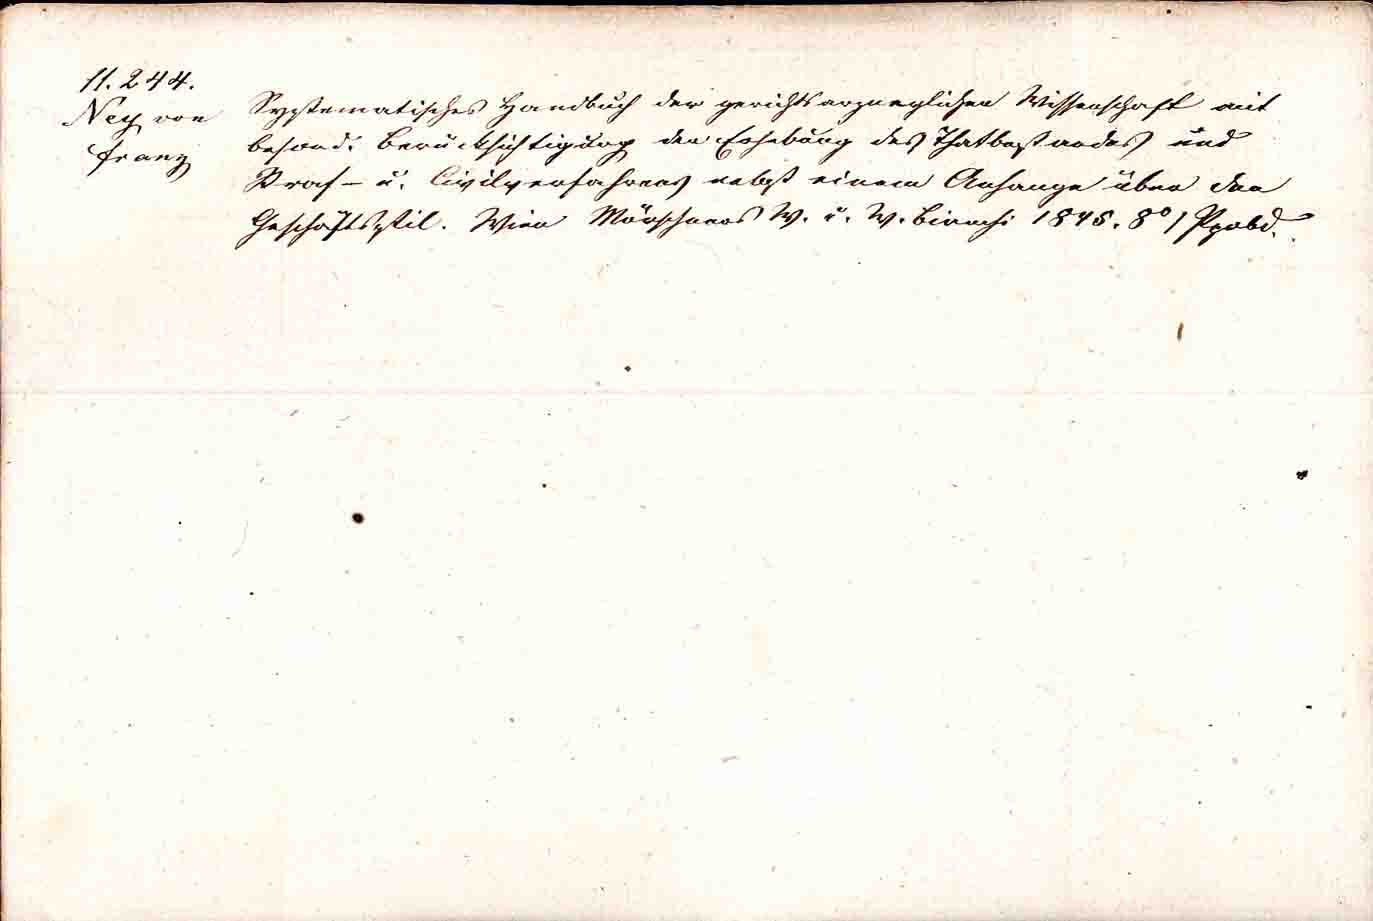 11.244.
Ney von
Franz
Systematisches Handbuch der gerichtsarzneylichen Wissenschaft mit
besond: Berücksichtigung der Erhebung des Thatbestandes und
Straf- u. Civilverfahrens nebst einem Anhange über den
Geschäftsstil. Wien Mörschners W. u. W. Bianchi 1845. 8° 1 Ppbd.